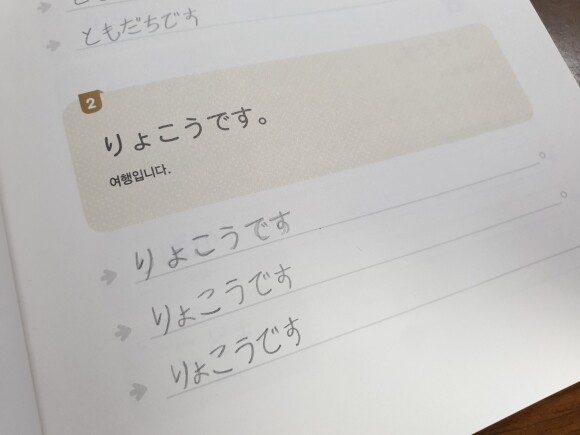 ともだちです
2
りょこうです。
여행입니다.
りょこうです
りょこうです
りょこうです